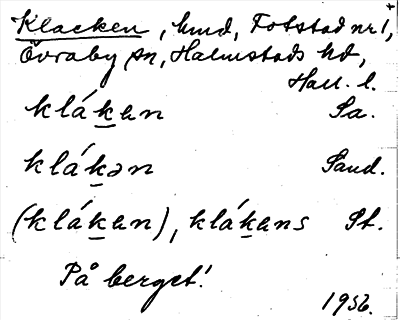 Klacken, hmd, Fotstad nr 1,
Övraby sn, Halmstads hd,
Hall. l.
klákan Sa.
klákən Sand.
(klákan), klákans St.
På berget!
1956.